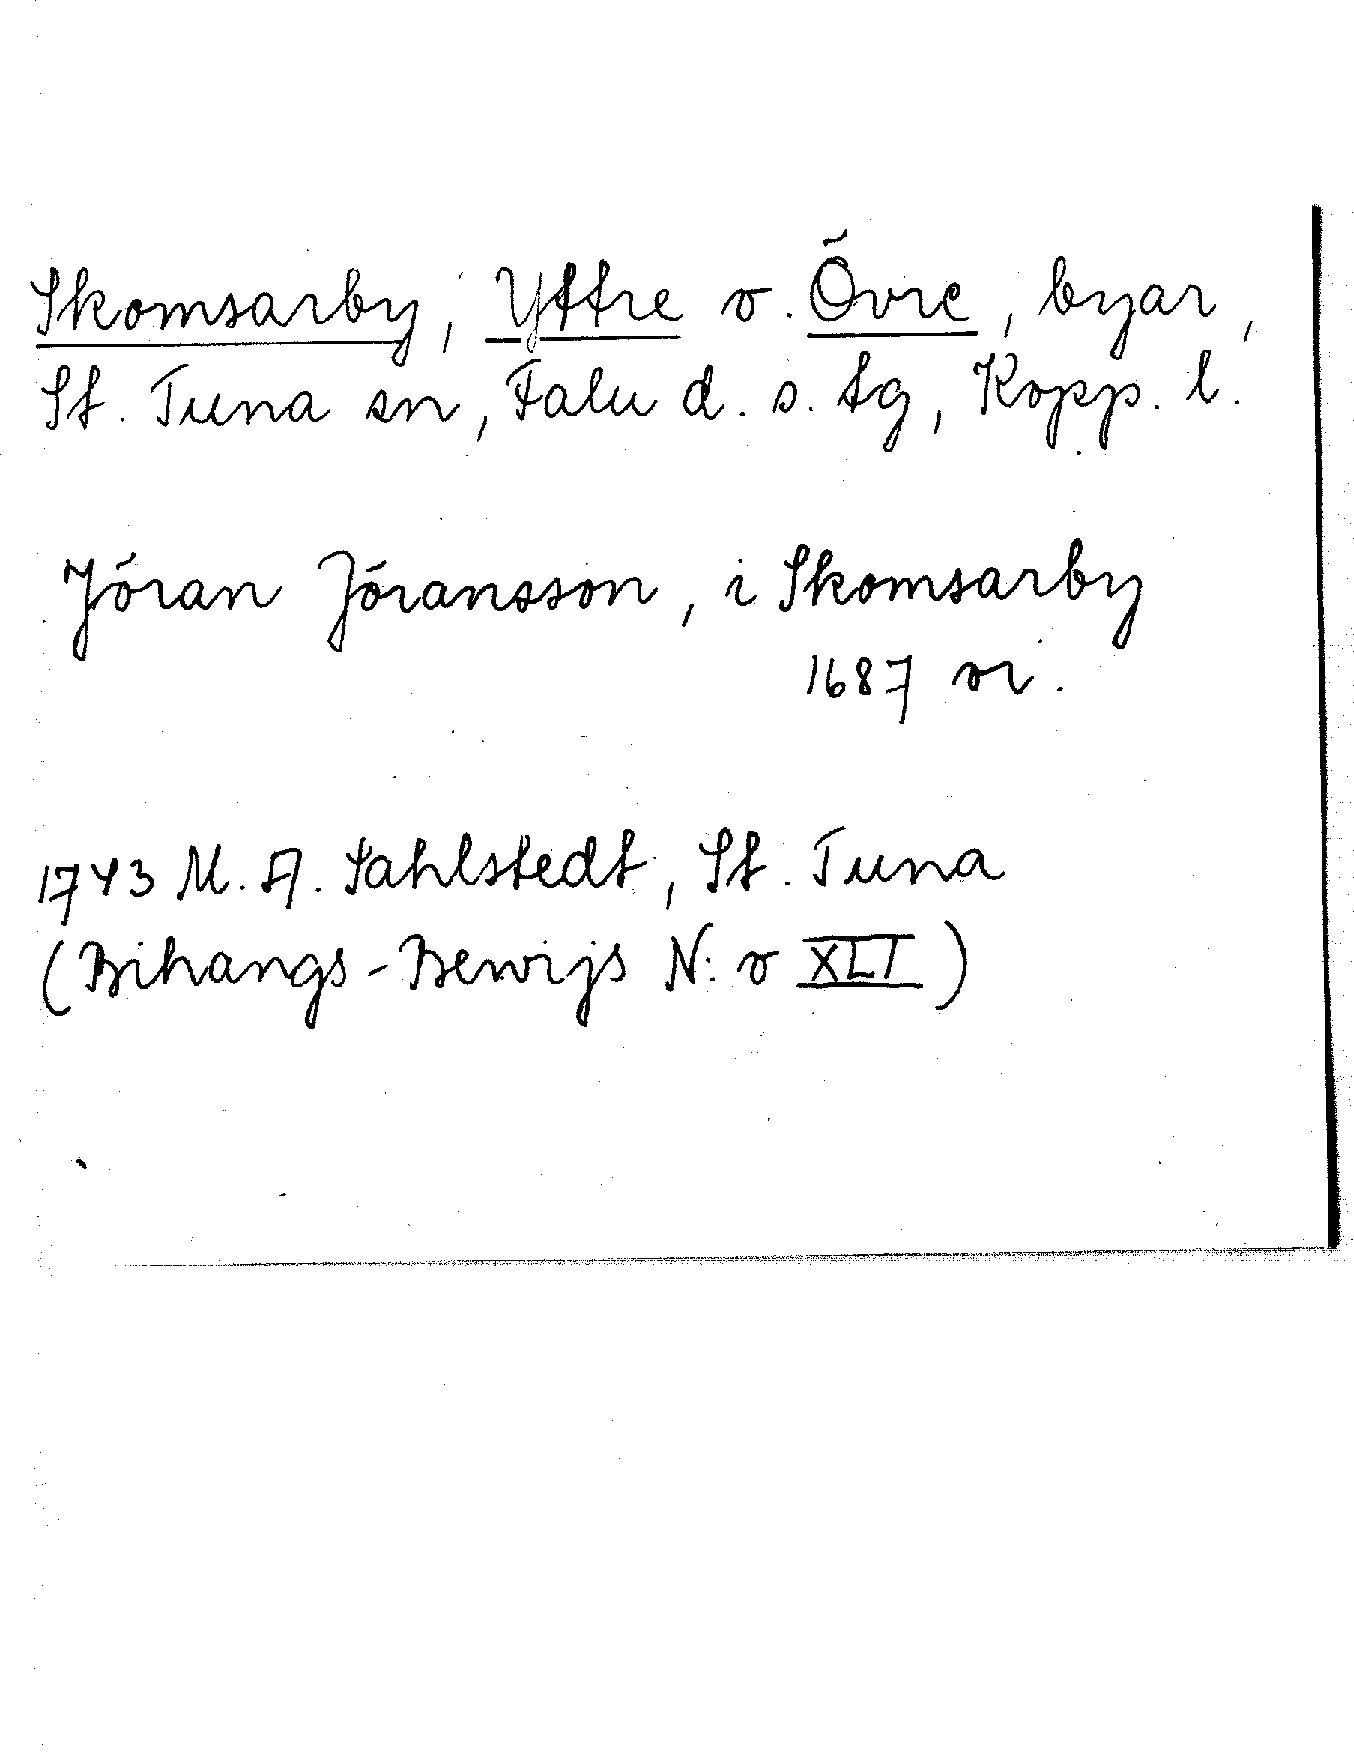 Skomsarby, Yttre o. Övre, byar,
St. Tuna sn, Falu d. s. tg, Kopp. l.
Jöran Jöransson, i Skomsarby
1687 or.
1743 M. A. Sahlstedt, St. Tuna
(Bihangs-Bewijs N:o XLI)